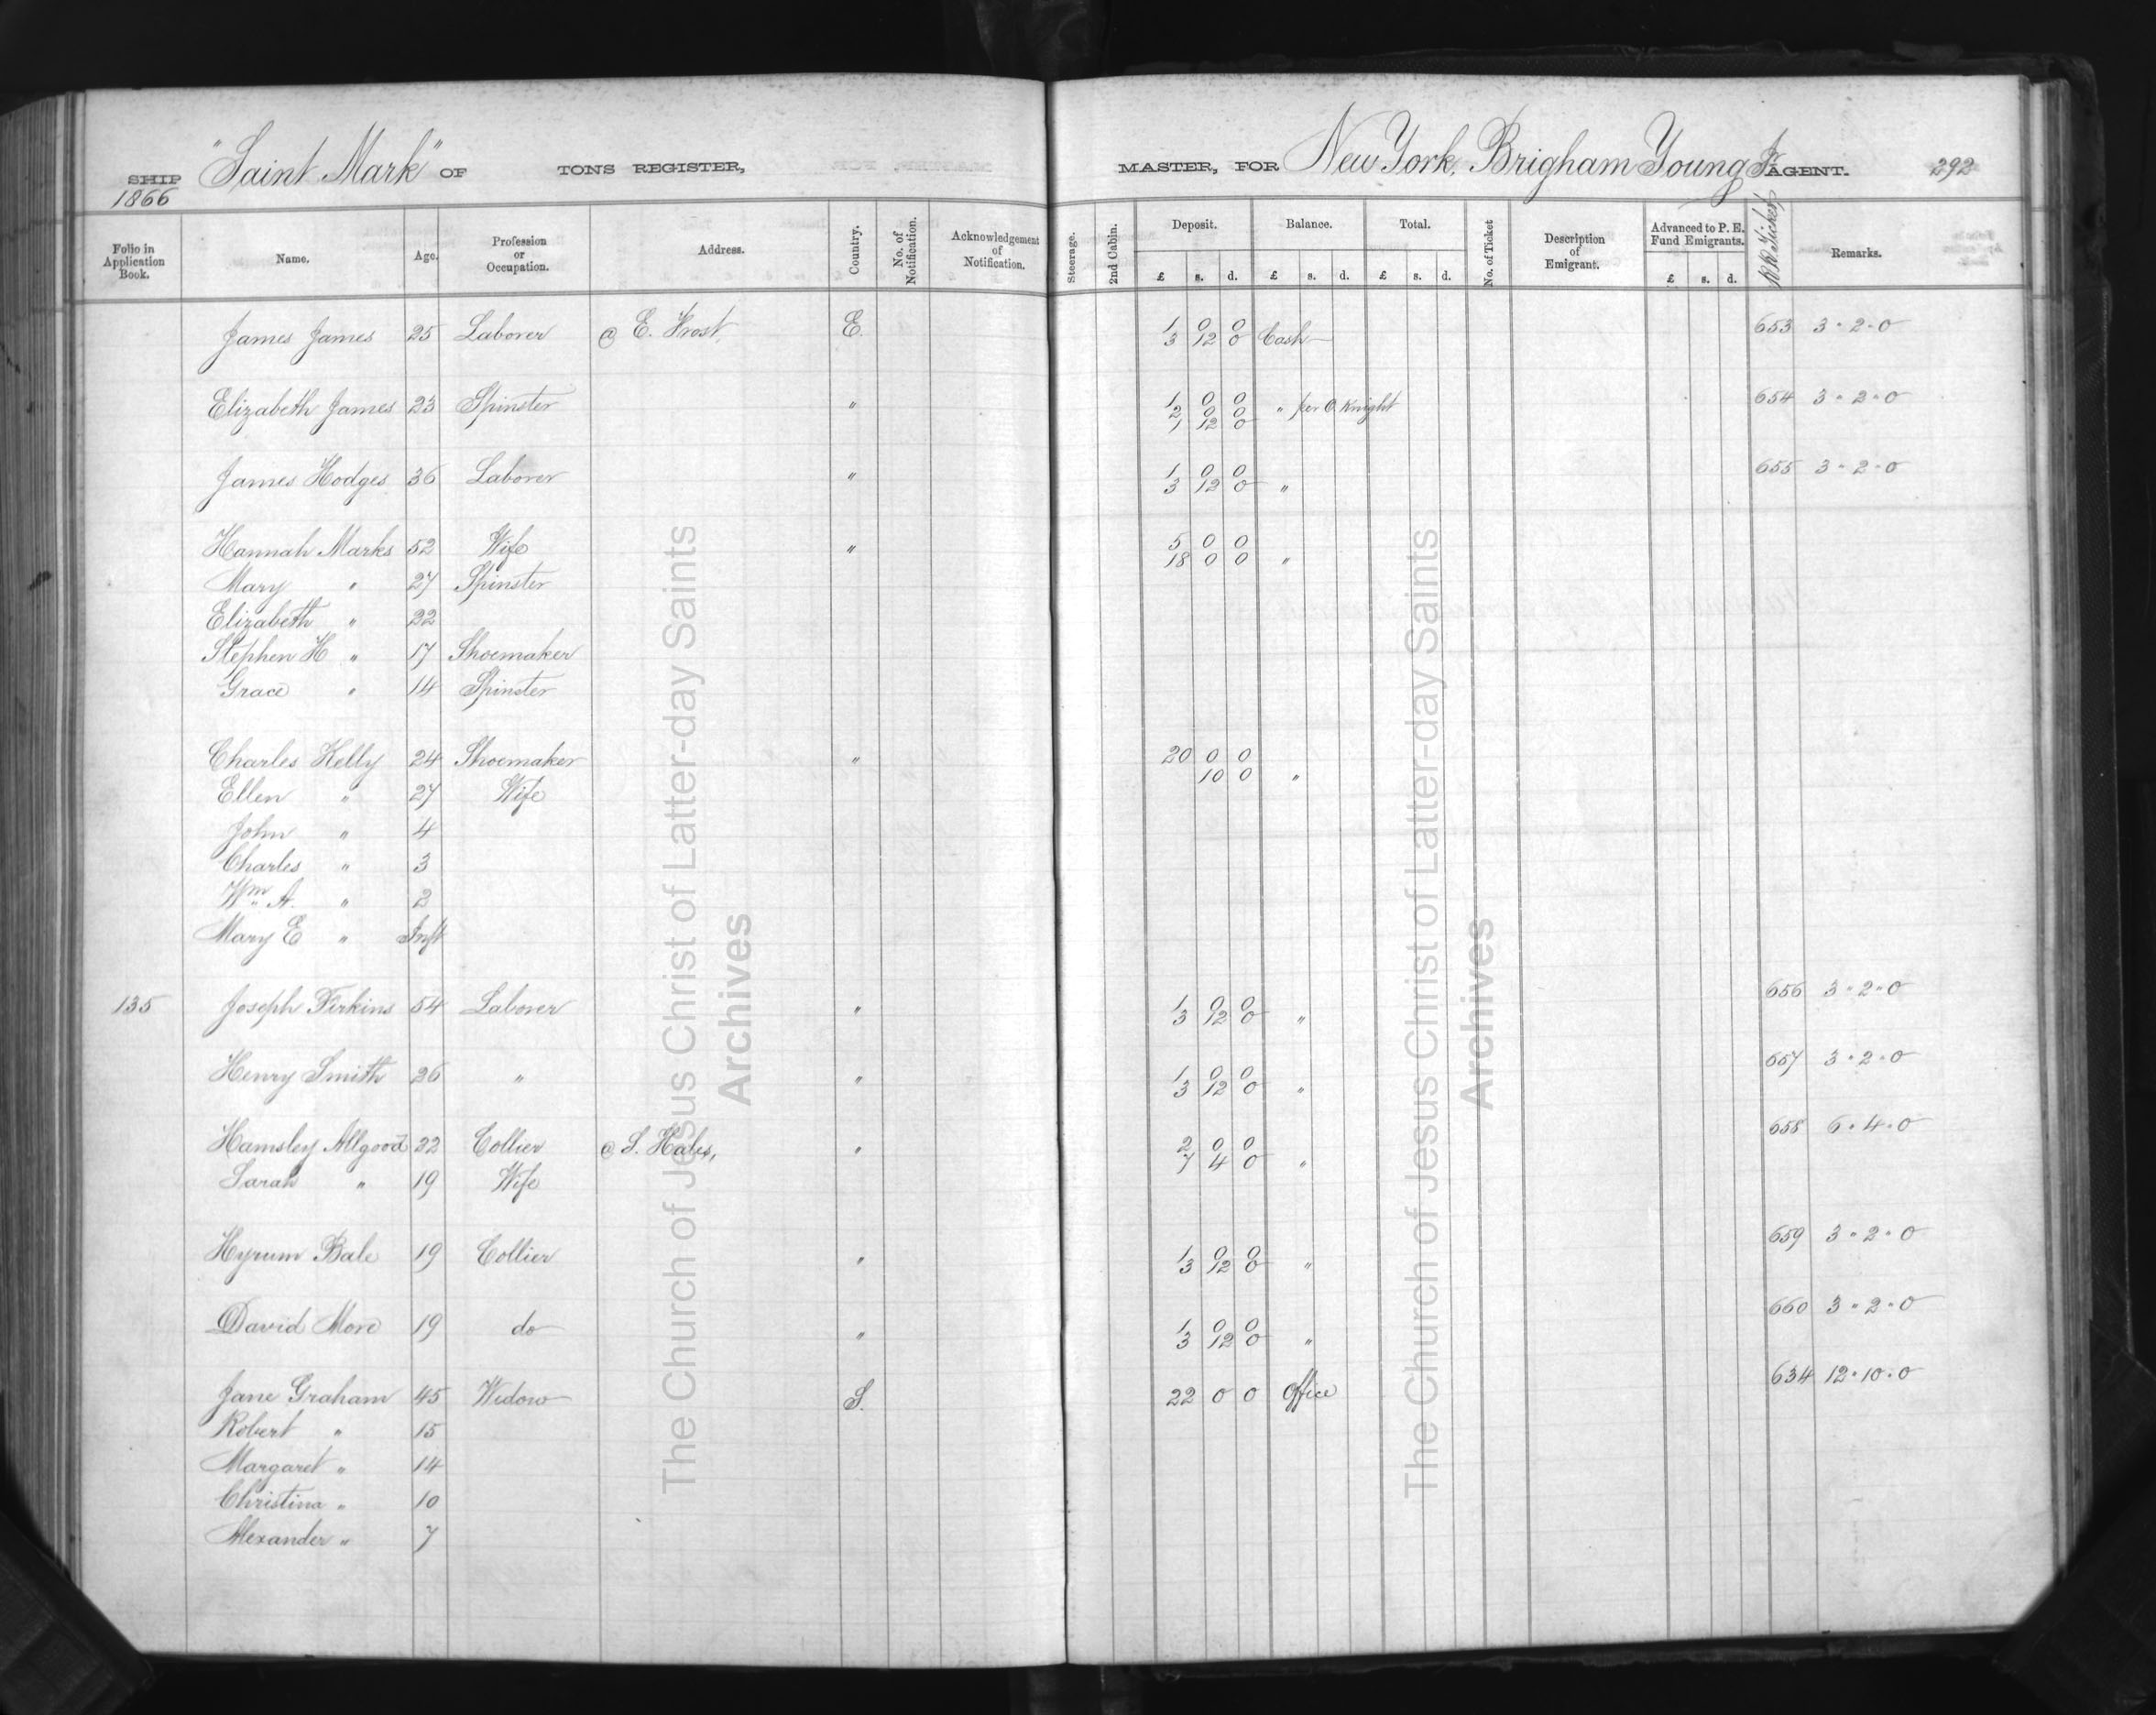 SHIP "Saint Mark" OF TONS REGISTER, MASTER, FOR New York, Brigham Young Jr AGENT. 292
1866
Folio in Application Book. Name. Age. Profession or Occupation. Address. Country. No. of Notification. Acknowledgement of Notification. Steerage. 2nd Cabin. Deposit. Balance. Total. No. of Ticket Description of Emigrant. Advanced to P. E. Fund Emigrants. RR Ticket Remarks.
£ s. d. £ s. d. £ s. d. £ s. d.
James James 25 Laborer @ E. Frost, E. 1 0 0 653 3 " 2 " 0
3 12 0 Cash
Elizabeth James 23 Spinster " 1 0 0 654 3 " 2 " 0
2 0 0 " per O. Knight
1 12 0
James Hodges 36 Laborer " 1 0 0 655 3 " 2 " 0
3 12 0 "
Hannah Marks 52 Wife " 5 0 0
18 0 0 "
Mary " 27 Spinster
Elizabeth " 22
Stephen H " 17 Shoemaker
Grace " 14 Spinster
Charles Kelly 24 Shoemaker " 20 0 0
10 0 "
Ellen " 27 Wife
John " 4
Charles " 3
Wm A. " 2
Mary E " Inft
135 Joseph Firkins 54 Laborer " 1 0 0 656 3 " 2 " 0
3 12 0 "
Henry Smith 26 " " 1 0 0 657 3 " 2 " 0
3 12 0 "
Hamsley Allgood 22 Collier @ S. Hales, " 2 0 0 658 6 " 4 " 0
7 4 0 "
Sarah " 19 Wife
Hyrum Bale 19 Collier " 1 0 0 659 3 " 2 " 0
3 12 0 "
David More 19 do " 1 0 0 660 3 " 2 " 0
3 12 0 "
Jane Graham 45 Widow S. 22 0 0 Office 634 12 " 10 " 0
Robert " 15
Margaret " 14
Christina " 10
Alexander " 7
The Church of Jesus Christ of Latter-day Saints
Archives
The Church of Jesus Christ of Latter-day Saints
Archives